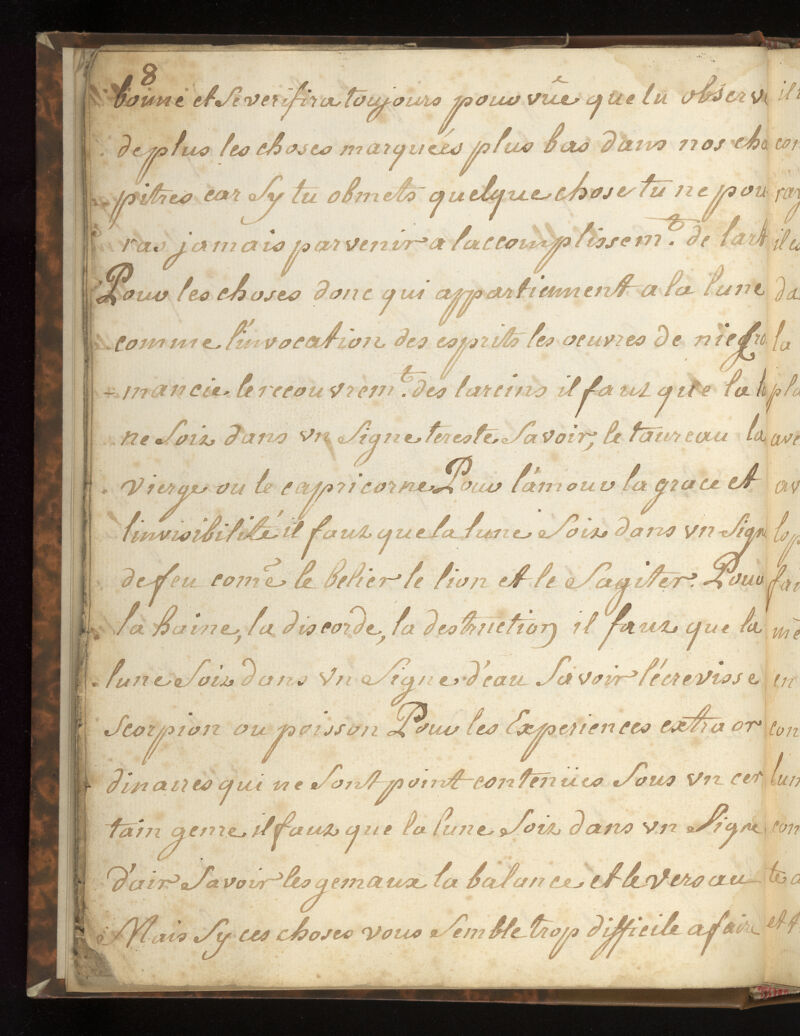 8
bonne et se verifira toujours pouvvûe que tu observe
de plus les choses marqueés plus bas dans nos cha
pitres car Sy tu obmets quelque chose tu ne pou
ras jamais parvenir a laccomplissemt. de lart
Pour les choses donc qui appartiennent a la lune
comme l'invocation des esprits les oeuvres de niegro
mancie le recouvremt. des larcins il faut que la lu
ne Soit dans vn Signe tereste Savoir, le taureau la
vierge ou le capricorne Pour lámour la grace et
linvisibilité il faut que la lune Soit dans vn Sign
de feu comē le belier le lion et le Sagiter. Pour
la haine, la discorde, la destruction il faut que la
lune Soit dans Vn Signe d'eau Savoir lécrevisse
Scorpion ou poisson Pour les Experiences extra or
dinaires qui ne Sont point contenües Sous vn cer
tain genre il faut que la lune Soit dans vn Signe
d'air Savoir les gemaux la balance et le Verseau
Mais Sy ces choses vous Semble trop difficile a faire